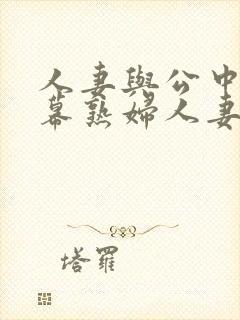 人妻與公中
幕熟婦人妻
塔羅